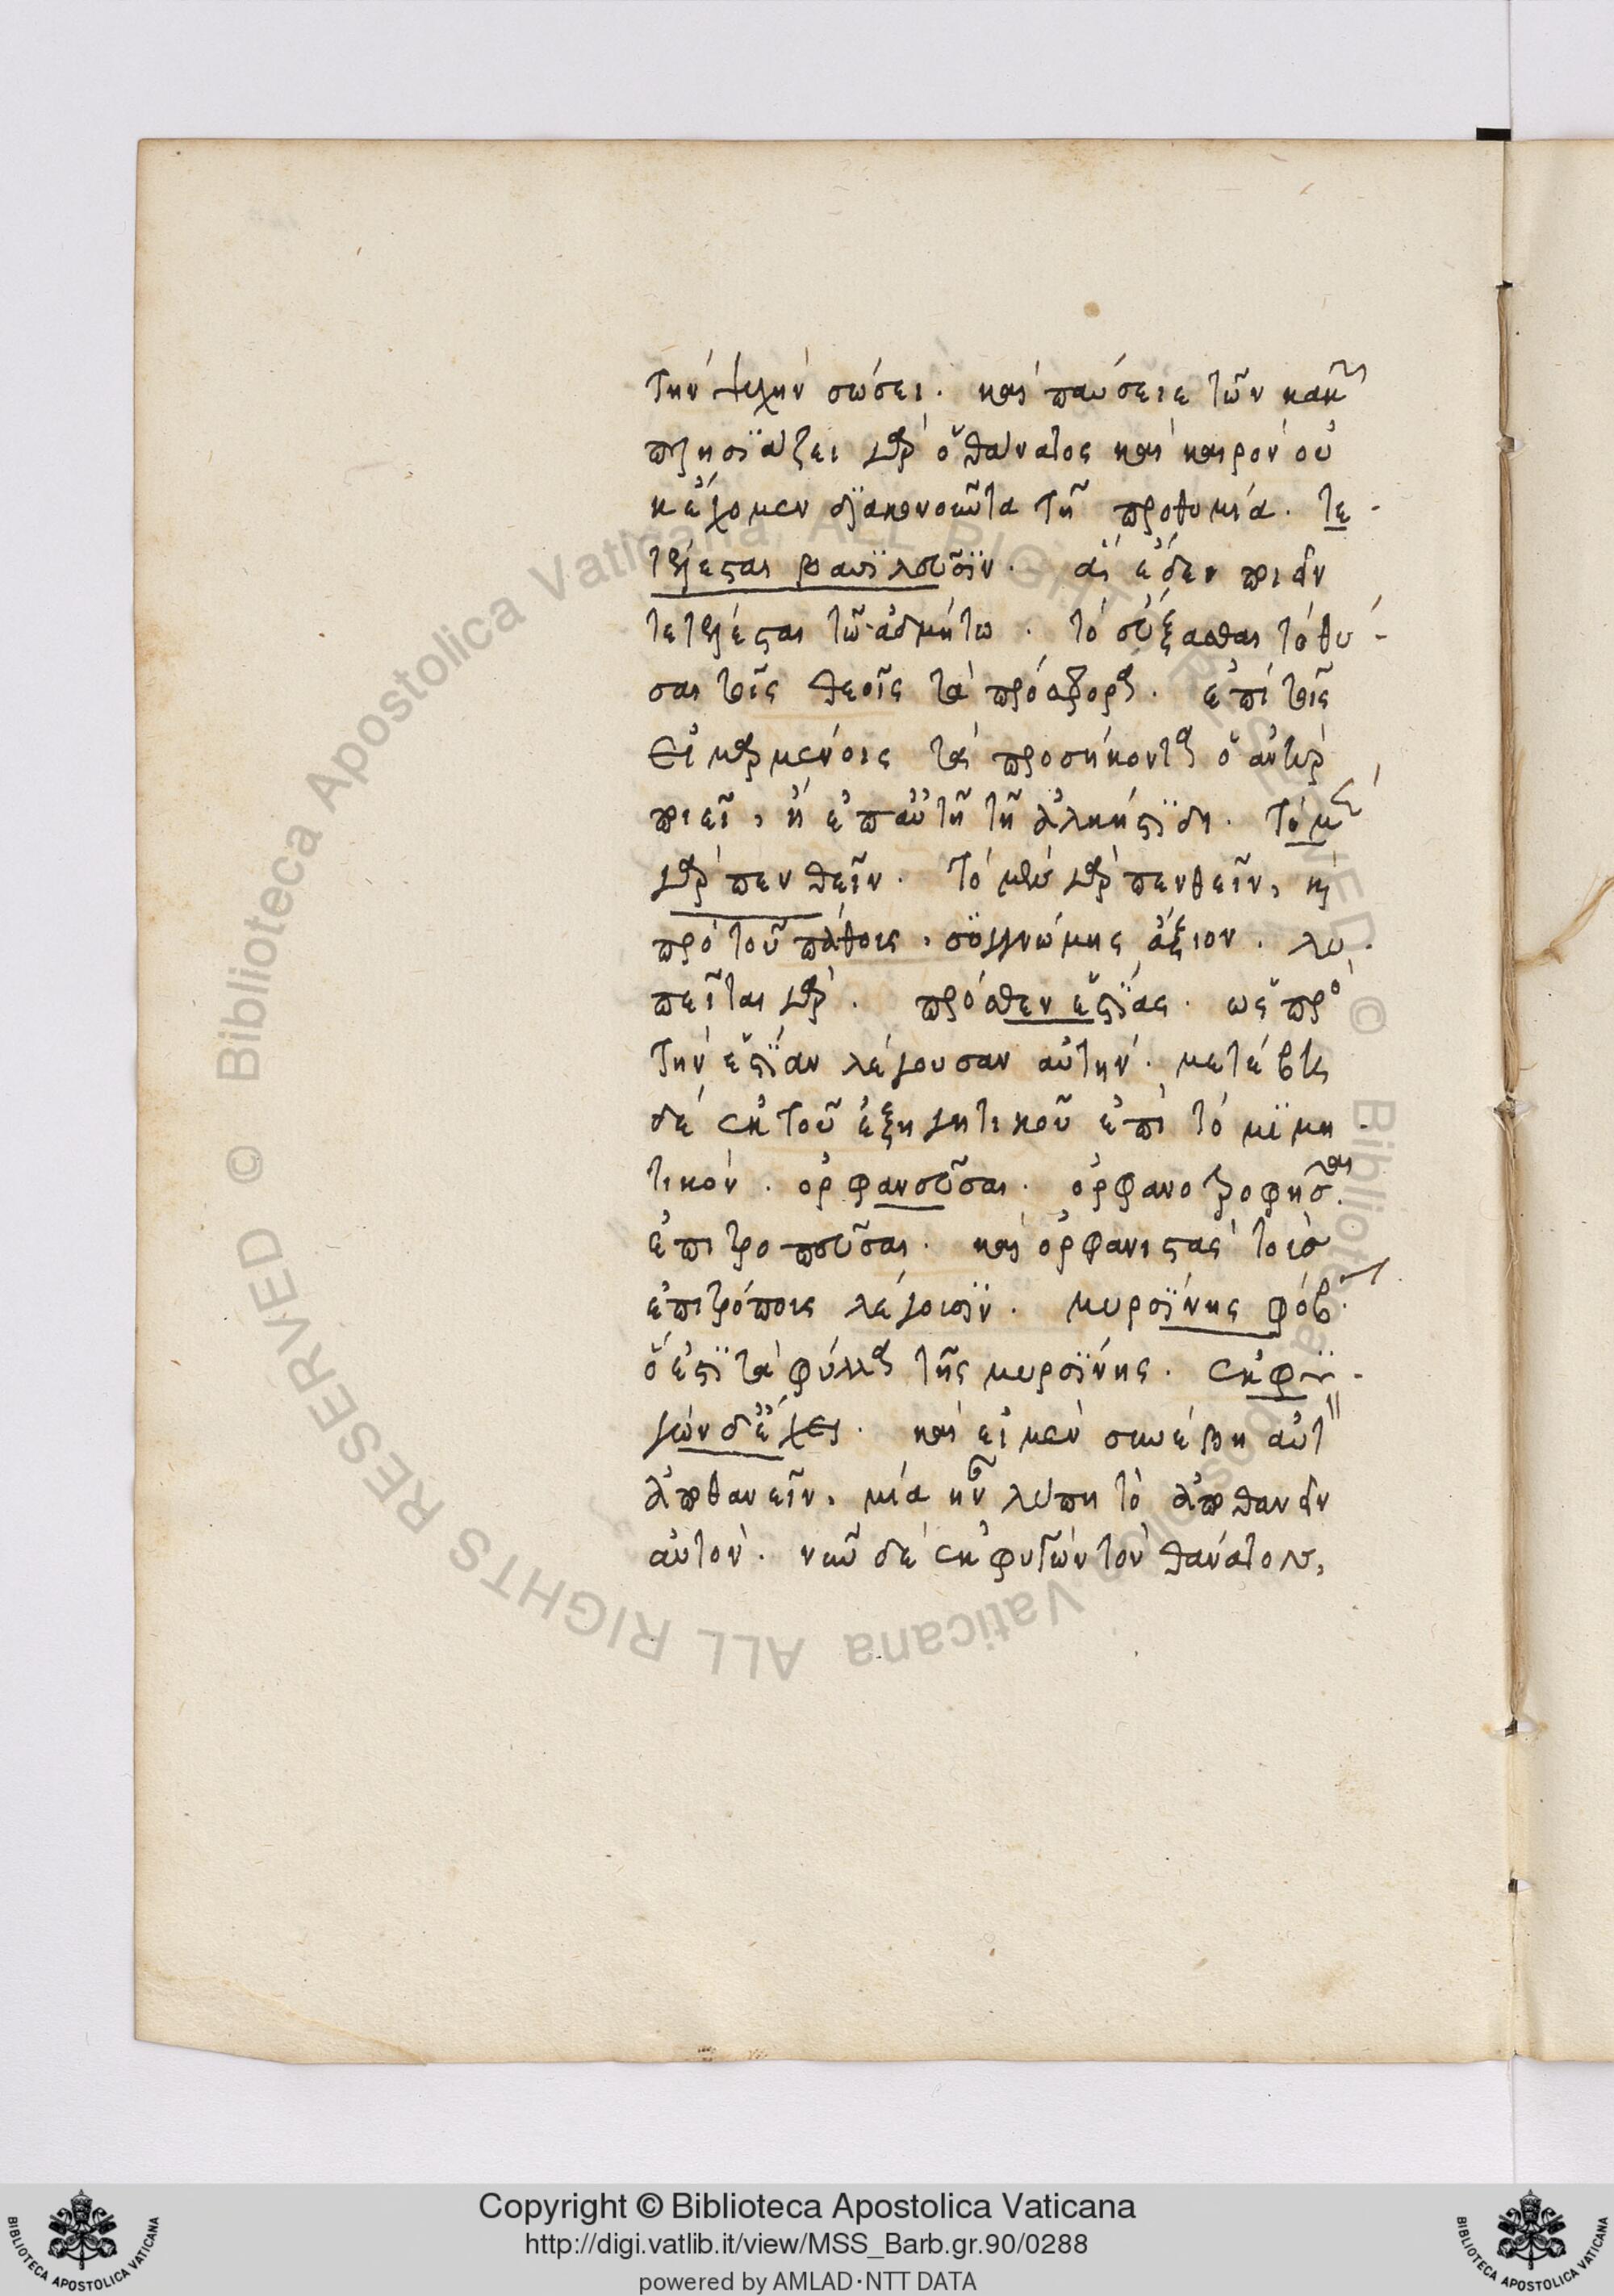 τὴν ψυχὴν σώσει. καὶ παύσειε τῶν κακῶν
πλησιάζει γὰρ ὁ θάνατος καὶ καιρὸν οὐ
κ ἔχομεν διακονοῦντα τῆ προθυμία. τε
τελέσται βασιλεῦσιν. ἀεὶ ἔδει ποιεῖν
τετελέσται τῶ ἀδμήτω. τὸ εὔξασθαι τὸ θύ
σαι τοῖς θεοῖς τὰ πρόσφορα. ἐπὶ τοῖς
εἱμαρμένοις τὰ προσήκοντα ὁ ἀνὴρ
ποιεῖ, ἢ ἐπ αὐτῆ τῆ ἀλκήστιδι. τὸ μὲν
γὰρ πενθεῖν. τὸ μὲν γὰρ πενθεῖν, καὶ
πρὸ τοῦ πάθους, συγγνώμης ἄξιον. λυ
πεῖται γάρ. πρόσθεν ἑστίας. ὡς πρὸ
τὴν ἑστίαν λέγουσαν αὐτήν. μετέβη
δὲ ἐκ τοῦ ἐξηγητικοῦ ἐπὶ τὸ μιμη
τικόν. ὀρφανεῦσαι. ὀρφανοτροφῆσαι.
ἐπιτροπεῦσαι. καὶ ὀρφανιστὰς τοὺς
ἐπιτρόπους λέγουσιν. μυρσίνης φόβην.
ὅ ἐστι τὰ φύλλα τῆς μυρσίνης. ἐκφυ
γὼν δ ἔχει. καὶ εἰ μὲν συνέβη αὐτὸν
ἀποθανεῖν, μία ἦν λύπη τὸ ἀποθανεῖν
αὐτόν. νῦν δὲ ἐκφυγὼν τὸν θάνατον,
Copyright © Biblioteca Apostolica Vaticana
http://digi.vatlib.it/view/MSS_Barb.gr.90/0288
powered by AMLAD·NTT DATA